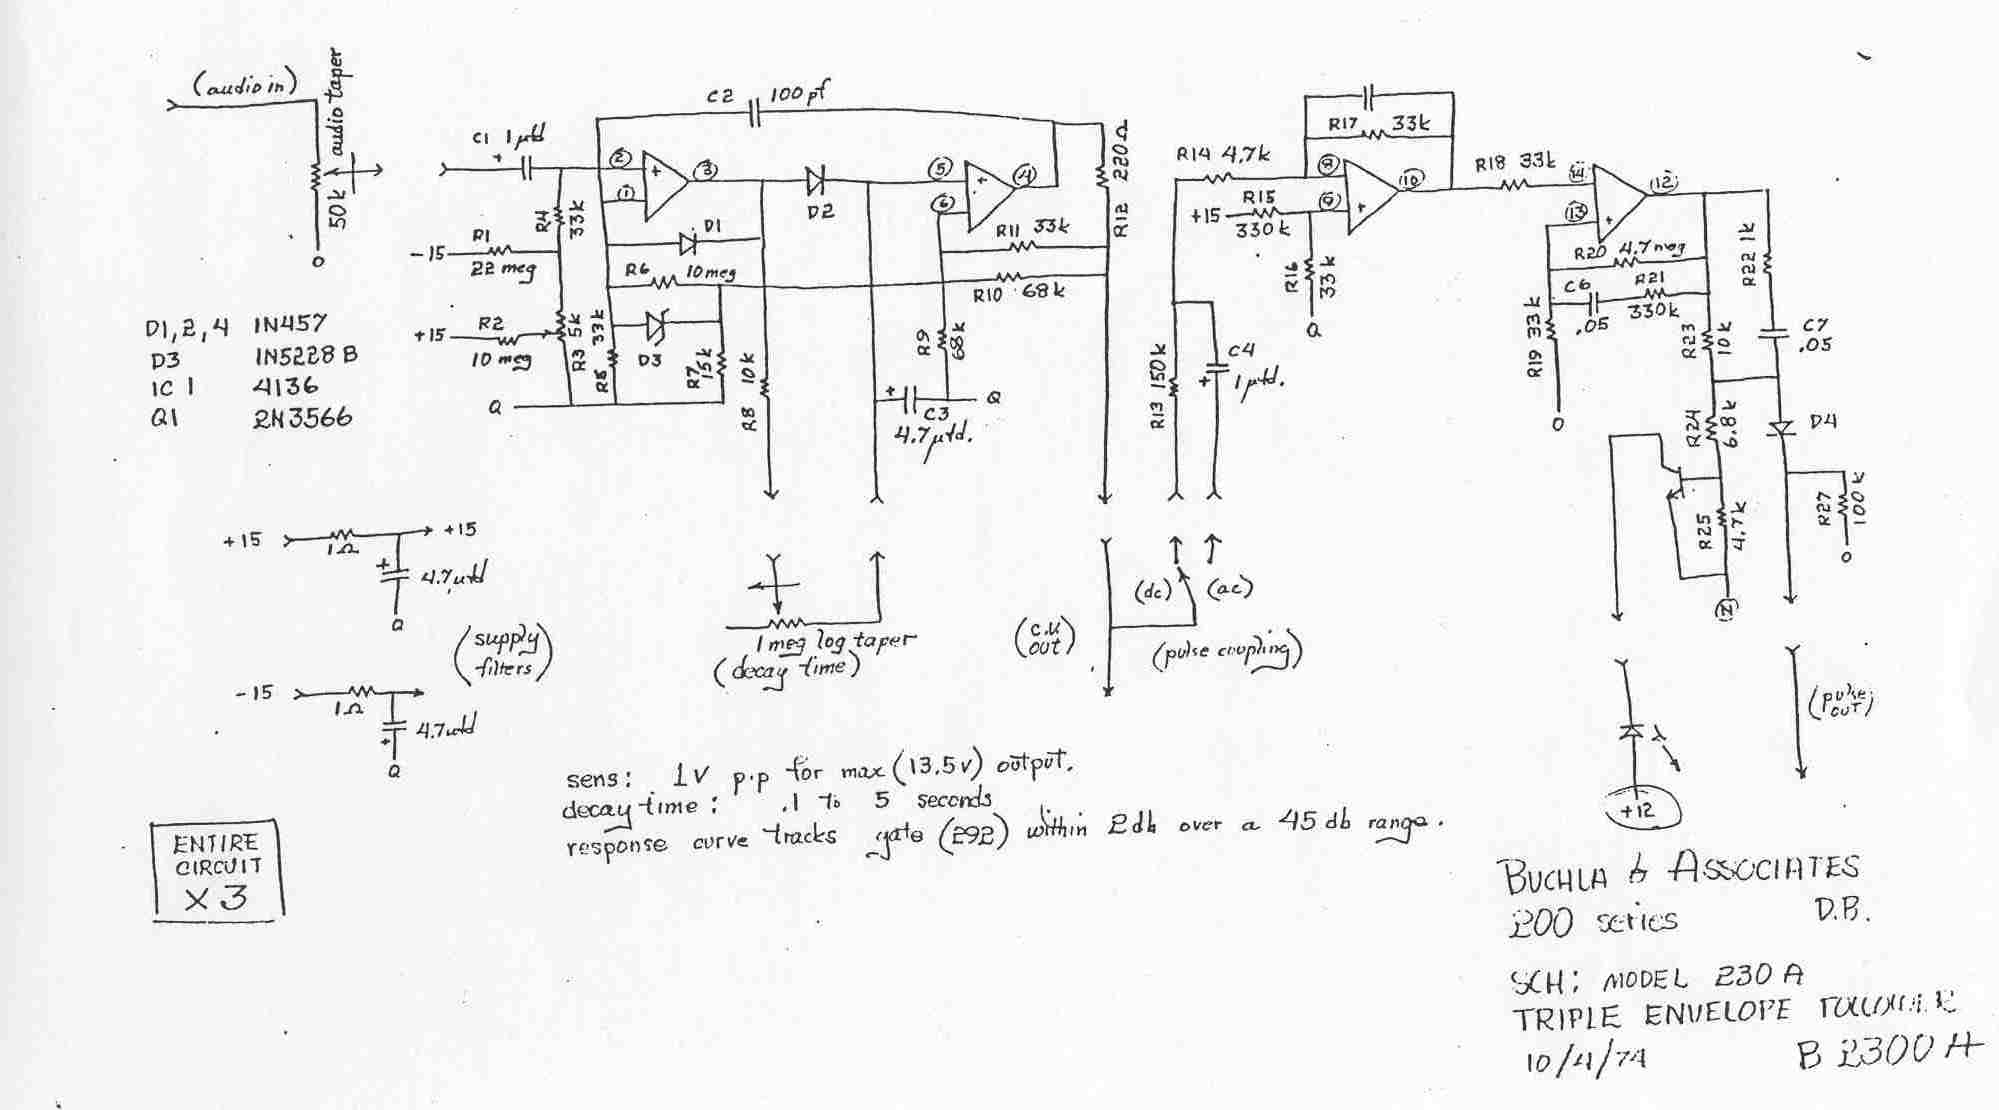 (audio in)
50k audio taper
C1 1µfd
+
C2 100 pf
R4 33k
-15 R1
22 meg
+15 R2
10 meg
R3 5k
R5 33k
Q
2
1
3
+
D1
R6 10 meg
D3
R7 15k
R8 10k
D2
5
6
4
+
R11 33k
R10 68k
R9 68k
+
C3
4.7 µfd.
Q
R12 220Ω
R14 4.7k
+15 R15
330k
R16 33k
Q
R17 33k
8
9
10
+
R13 150k
C4
1µfd.
+
R18 33k
14
13
12
+
R20 4.7 meg
C6 R21
.05 330k
R19 33k
O
R22 1k
R23 10k
C7
.05
R24 6.8k
D4
R25 4.7k
R27 100k
O
D1,2,4 1N457
D3 1N5228B
IC 1 4136
Q1 2N3566
+15 1Ω +15
+
4.7µfd
Q
(supply
filters)
-15 1Ω
4.7µfd
+
Q
1 meg log taper
(decay time)
(c.v.
out)
(dc) (ac)
(pulse coupling)
λ
+12
(pulse
out)
sens: 1V p.p for max (13.5v) output.
decay time: .1 to 5 seconds
response curve tracks gate (292) within 2db over a 45 db range.
ENTIRE
CIRCUIT
X 3
BUCHLA & ASSOCIATES
200 series D.B.
SCH: MODEL 230A
TRIPLE ENVELOPE FOLLOWER
10/4/74 B 2300 A